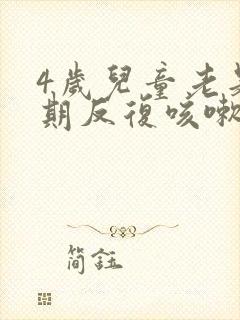 4歲兒童老是
期反復咳嗽
簡鈺